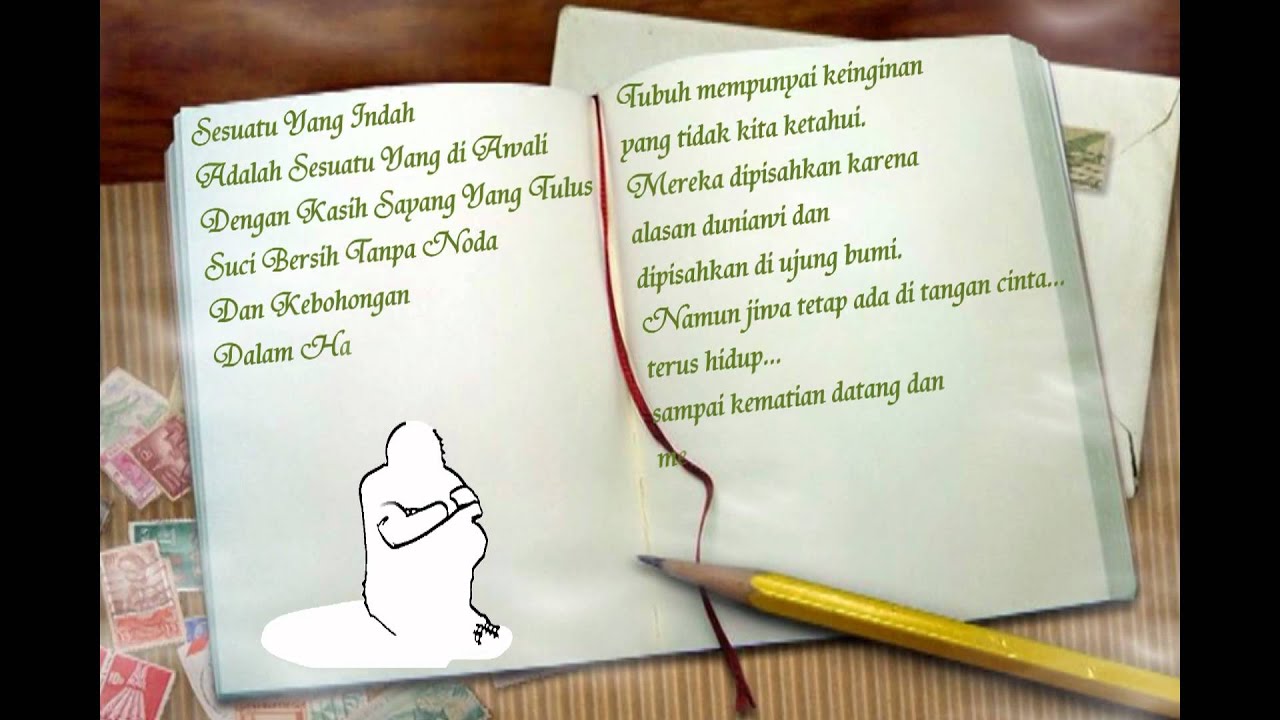 Sesuatu Yang Indah
Adalah Sesuatu Yang di Awali
Dengan Kasih Sayang Yang Tulus
Suci Bersih Tanpa Noda
Dan Kebohongan
Dalam Ha
Tubuh mempunyai keinginan
yang tidak kita ketahui.
Mereka dipisahkan karena
alasan duniawi dan
dipisahkan di ujung bumi.
Namun jiwa tetap ada di tangan cinta...
terus hidup...
sampai kematian datang dan
me